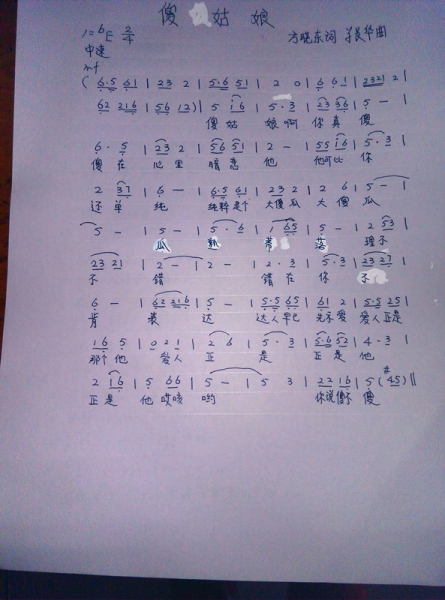 傻 姑 娘
1=♭E 2/4 方晓东词 羊良华曲
中速
mf
( 6·5 61 | 23 2 | 5·6 51 | 2 0 | 6 6 1 | 2321 2 |
62 216 | 56 12) | 5 i6 | 5·3 | 23 36 | 5 - |
傻 姑 娘啊 你真 傻
6·5 | 23 2 | 56 51 | 2 - | 55 i6 | 5·3 |
傻 在 心里 暗恋 他 他可比 你
2 37 | 6 - | 6·5 61 | 23 2 | 2 6 | 5 - |
还 单 纯 纯粹是个 大傻瓜 大 傻 瓜
5 - | 5 - | 5·6 | 1 65 | 5 - | 2 53 |
瓜 落 理不
23 21 | 2 - | 2 - | 2·3 | 5·3 | 23 27 |
不 错 错 在 你 不
6 - | 62 216 | 5 - | 5·5 65 | 61 2 | 5·5 25 |
肯 表 达 达人早已 先不爱 爱人正是
16 5 | 0 2 1 | 2 6 | 5·3 | 5·6 52 | 4·3 |
那个他 爱人 正 是 正 是 他
2 i6 | 5 66 | 5 - | 5 3 | 22 16 | 5 (#45) ‖
正 是 他 哎咳 哟 你说傻不 傻